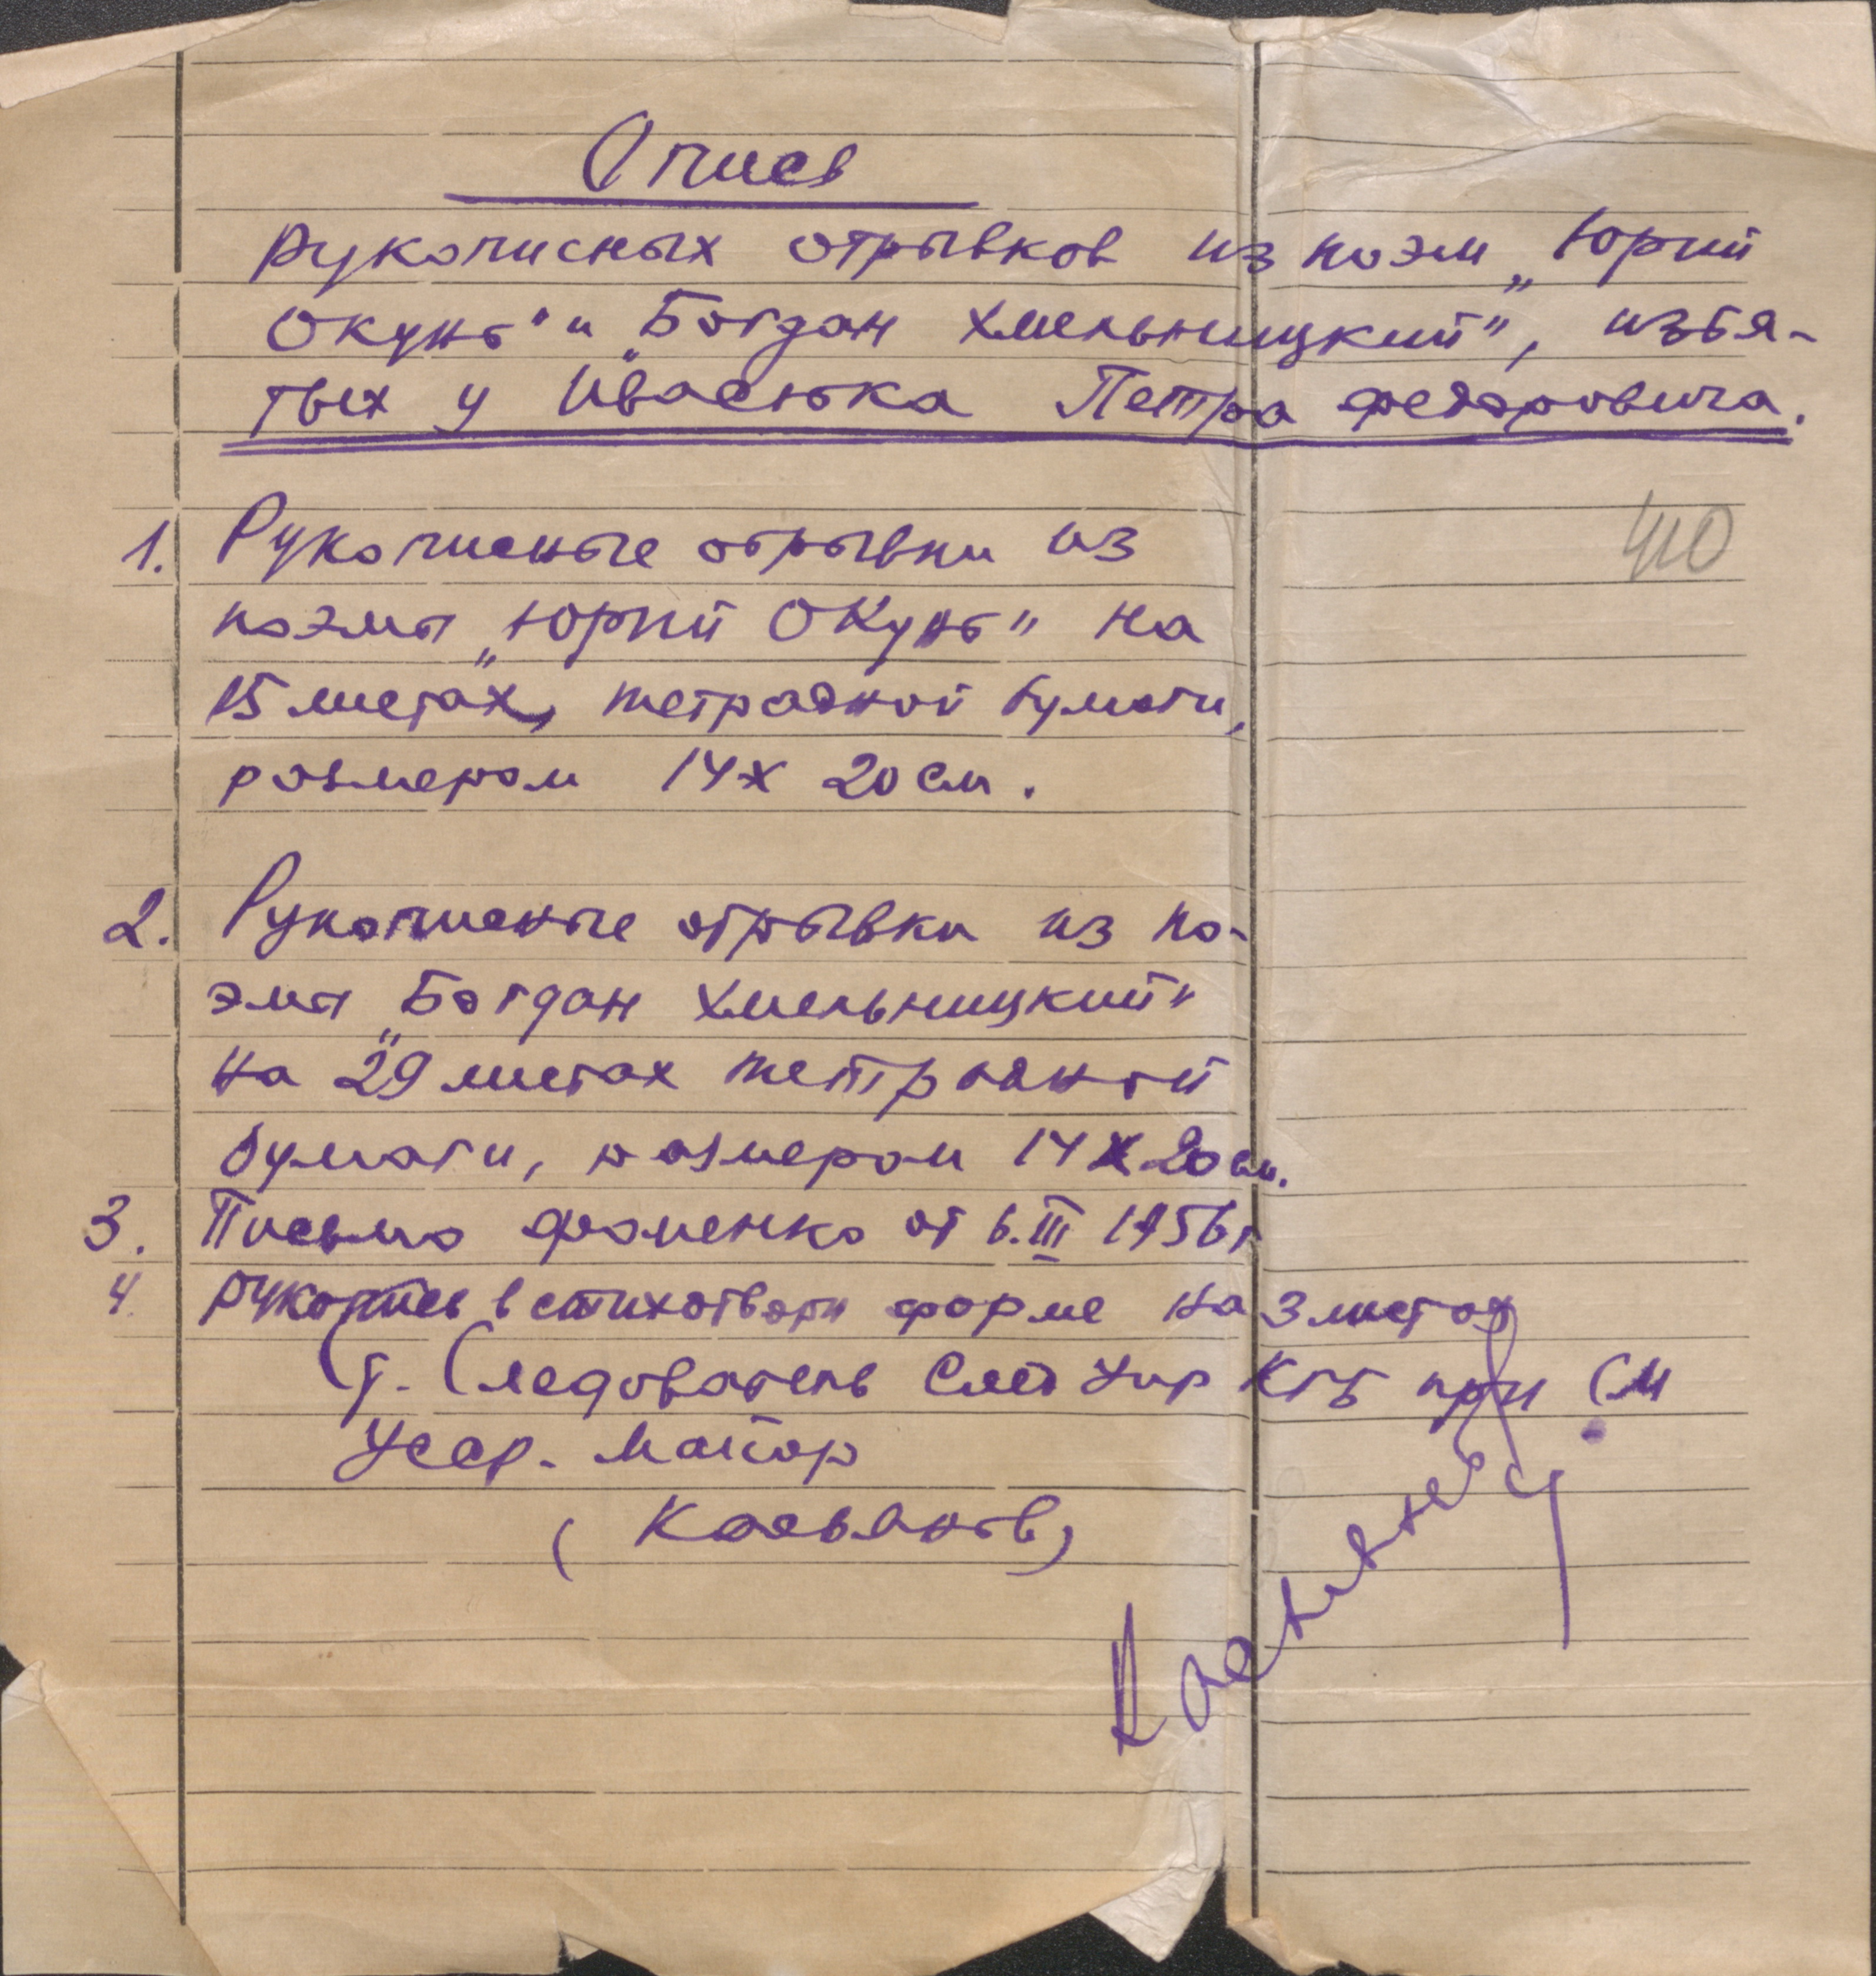 Опись
рукописных отрывков из поэм „Юрий
Окунь" и „Богдан Хмельницкий", изъя-
тых у Ивасюка Петра Федоровича.
410
1. Рукописные отрывки из
поэмы „Юрий Окунь" на
15 листах, тетрадной бумаги,
размером 14х 20 см.
2. Рукописные отрывки из по-
эмы „Богдан Хмельницкий"
на 29 листах тетрадной
бумаги, размером 14х20 см.
3. Письмо Фоменко от 6.III 1956 г
4. Рукопись в стихотворн форме на 3 листах
Ст. Следователь След Упр КГБ при СМ
Усср. Майор
(Касьянов)